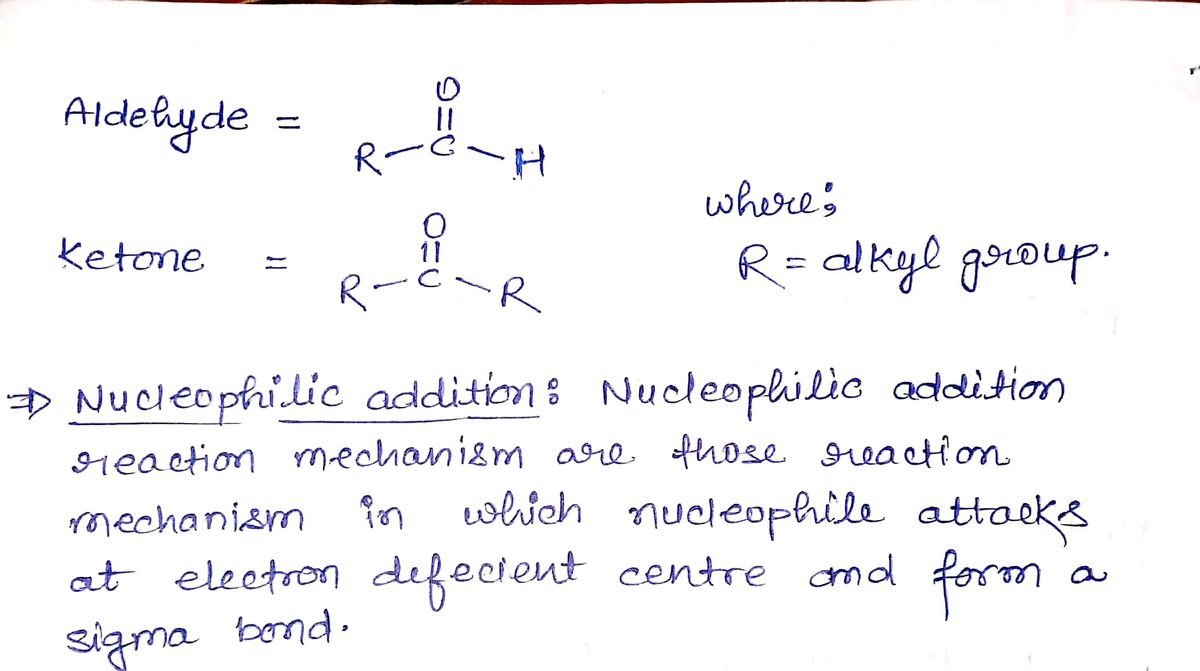 Aldehyde =
O
||
R-C-H
where;
Ketone =
O
||
R-C-R
R = alkyl group.
⇒ Nucleophilic addition: Nucleophilic addition
reaction mechanism are those reaction
mechanism in which nucleophile attacks
at electron defecient centre and form a
sigma bond.